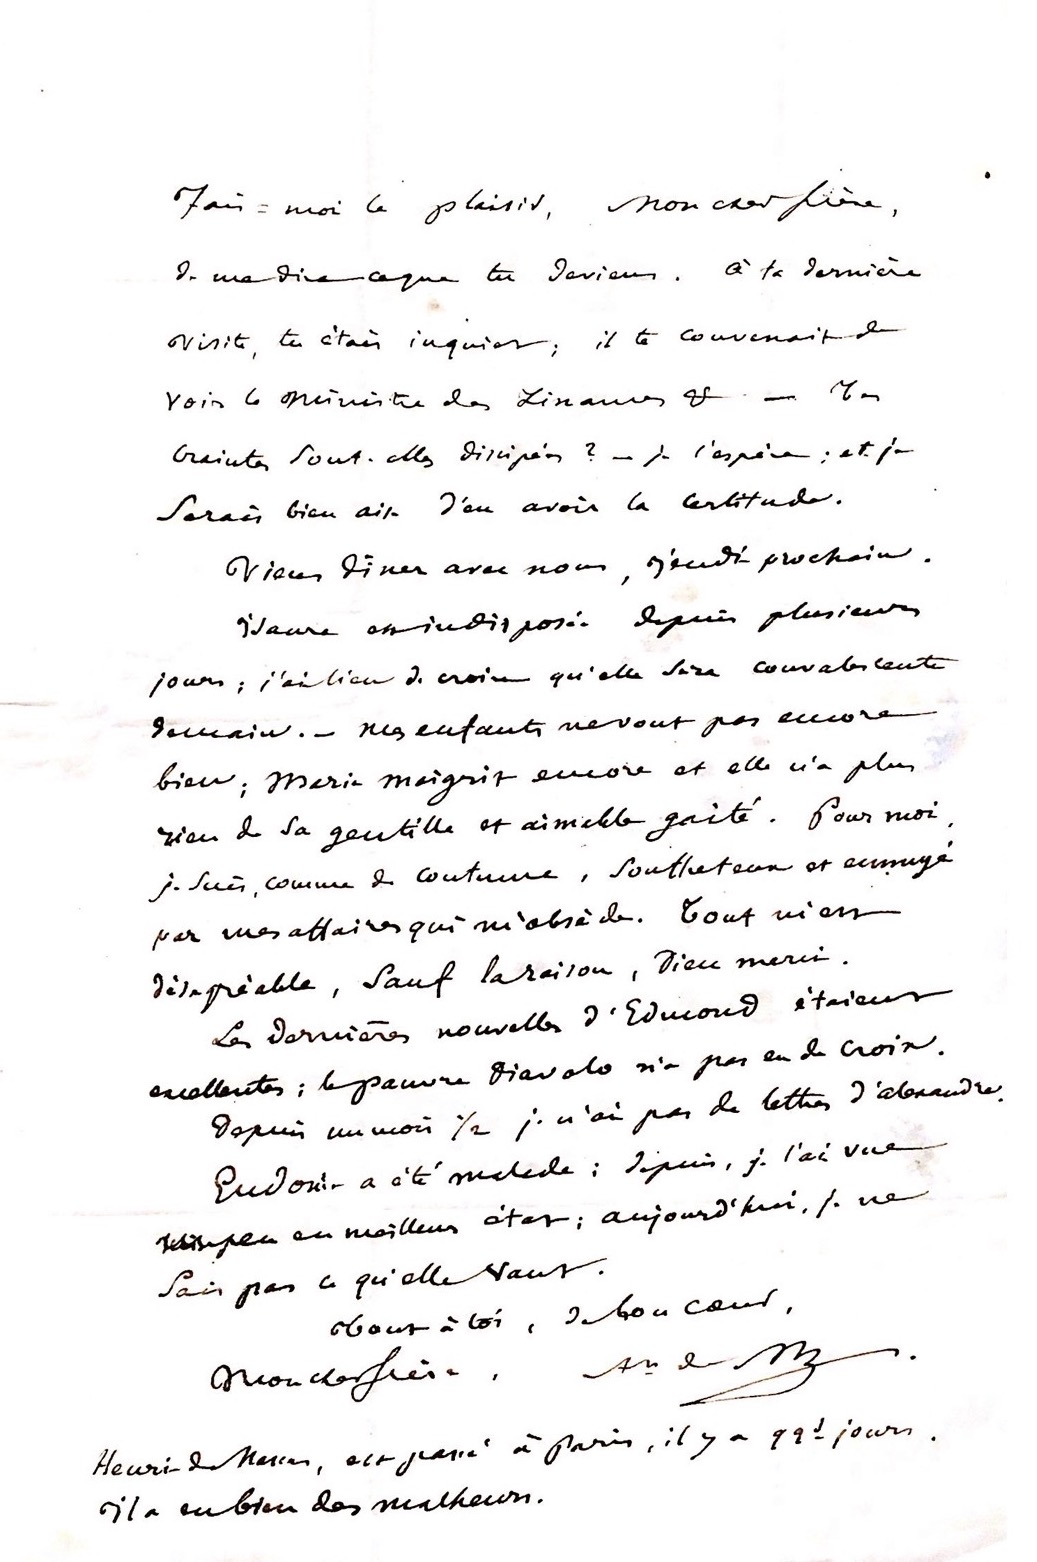 Fais=moi le plaisir, mon cher frère,
de me dire ce que tu deviens. à ta dernière
visite, tu étais inquiet; il te convenait de
voir le Ministre des Finances & — Tes
craintes sont-elles dissipées ? — je l'espère; et je
serais bien aise d'en avoir la certitude.
Viens dîner avec nous, jeudi prochain.
Isaure est indisposée depuis plusieurs
jours; j'ai lieu de croire qu'elle sera convalescente
demain. — mes enfants ne vont pas encore
bien; Marie maigrit encore et elle n'a plus
rien de sa gentille et aimable gaité. Pour moi,
je suis, comme de coutume, souffreteux et ennuyé
par mes affaires qui m'obsède. Tout m'est
désagréable, sauf la raison, Dieu merci.
Les dernières nouvelles d'Edmond étaient
excellentes; le pauvre Diavolo n'a pas eu de croix.
Depuis un mois 1/2 je n'ai pas de lettres d'alexandre.
Eudoxie a été malade; depuis, je l'ai vue
un peu en meilleur état; aujourd'hui, je ne
sais pas ce qu'elle vaut.
Tout à toi, de bon cœur,
Mon cher frère, An de
Henri de, est passé à Paris, il y a qq! jours.
Il a eu bien des malheurs.